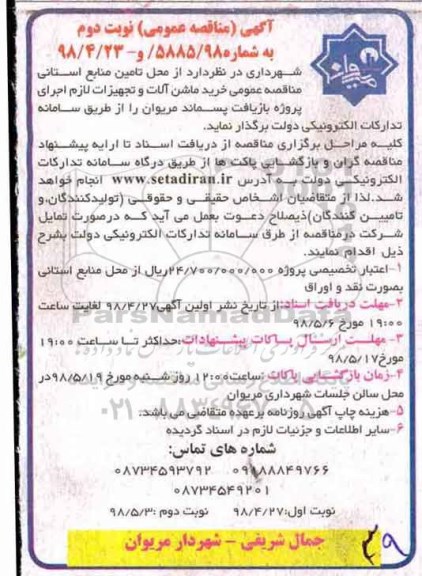 آگهی (مناقصه عمومی) نوبت دوم
به شماره ۵۸۸۵/۹۸/ و- ۹۸/۴/۲۳
شهرداری در نظردارد از محل تامین منابع استانی
مناقصه عمومی خرید ماشین آلات و تجهیزات لازم اجرای
پروژه بازیافت پسماند مریوان را از طریق سامانه
تدارکات الکترونیکی دولت برگذار نماید.
کلیه مراحل برگزاری مناقصه از دریافت اسناد تا ارایه پیشنهاد
مناقصه گران و بازگشایی پاکت ها از طریق درگاه سامانه تدارکات
الکترونیکی دولت به آدرس www.setadiran.ir انجام خواهد
شد.لذا از متقاضیان اشخاص حقیقی و حقوقی (تولیدکنندگان،و
تامیین کنندگان)ذیصلاح دعوت بعمل می آید که درصورت تمایل
شرکت درمناقصه از طرق سامانه تدارکات الکترونیکی دولت بشرح
ذیل اقدام نمایند.
۱-اعتبار تخصیصی پروژه ۲۴/۷۰۰/۰۰۰/۰۰۰ریال از محل منابع استانی
بصورت نقد و اوراق
۲-مهلت دریافت اسناد:از تاریخ نشر اولین آگهی۹۸/۴/۲۷ لغایت ساعت
۱۹:۰۰ مورخ ۹۸/۵/۶
۳- مهلت ارسال پاکات پیشنهادات:حداکثر تا ساعت ۱۹:۰۰
مورخ۹۸/۵/۱۷
۴-زمان بازگشایی پاکات :ساعت۱۲:۰۰ روز شنبه مورخ ۹۸/۵/۱۹در
محل سالن جلسات شهرداری مریوان
۵-هزینه چاپ آگهی روزنامه برعهده متقاضی می باشد.
۶-سایر اطلاعات و جزئیات لازم در اسناد گردیده
شماره های تماس:
۰۹۱۸۸۸۴۹۷۶۶ ۰۸۷۳۴۵۹۳۷۹۲
۰۸۷۳۴۵۴۹۲۰۱
نوبت اول:۹۸/۴/۲۷ نوبت دوم :۹۸/۵/۳
جمال شریفی - شهردار مریوان
ParsNamadData